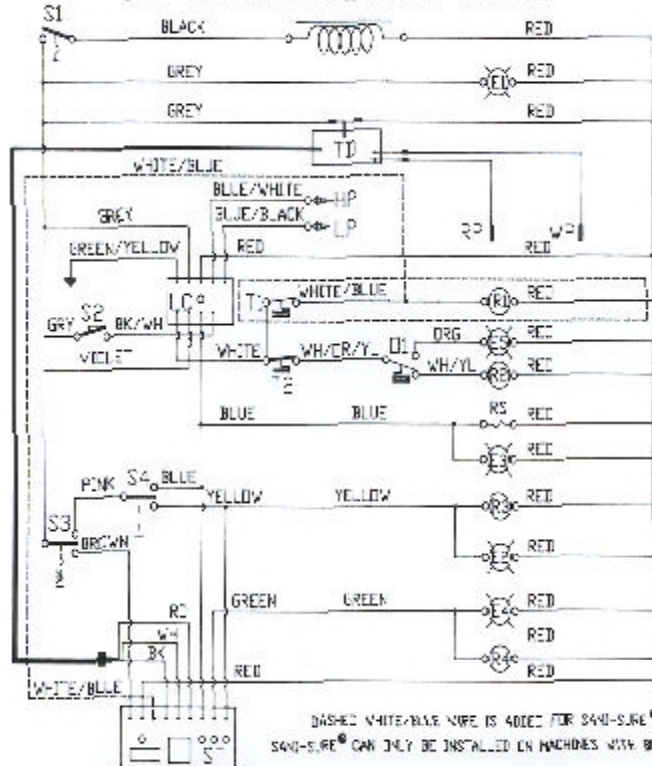 S1
BLACK
RED
GREY
E1
RED
GREY
RED
TD
WHITE/BLUE
BLUE/WHITE
HP
GREY
BLUE/BLACK
LP
RP
WP
GREEN/YELLOW
RED
RED
LC
WHITE/BLUE
R1
RED
S2
GRY
BK/WH
ORG
E5
RED
VIOLET
WHITE
WH/GR/YL
O1
WH/YL
R2
RED
T2
BLUE
BLUE
RS
RED
E3
RED
PINK
S4
BLUE
YELLOW
YELLOW
R3
RED
S3
BROWN
E2
RED
RD
GREEN
GREEN
E4
RED
WH
RED
BK
R4
RED
RED
WHITE/BLUE
DASHED WHITE/BLUE WIRE IS ADDED FOR SANI-SURE®
SANI-SURE® CAN ONLY BE INSTALLED ON MACHINES WITH